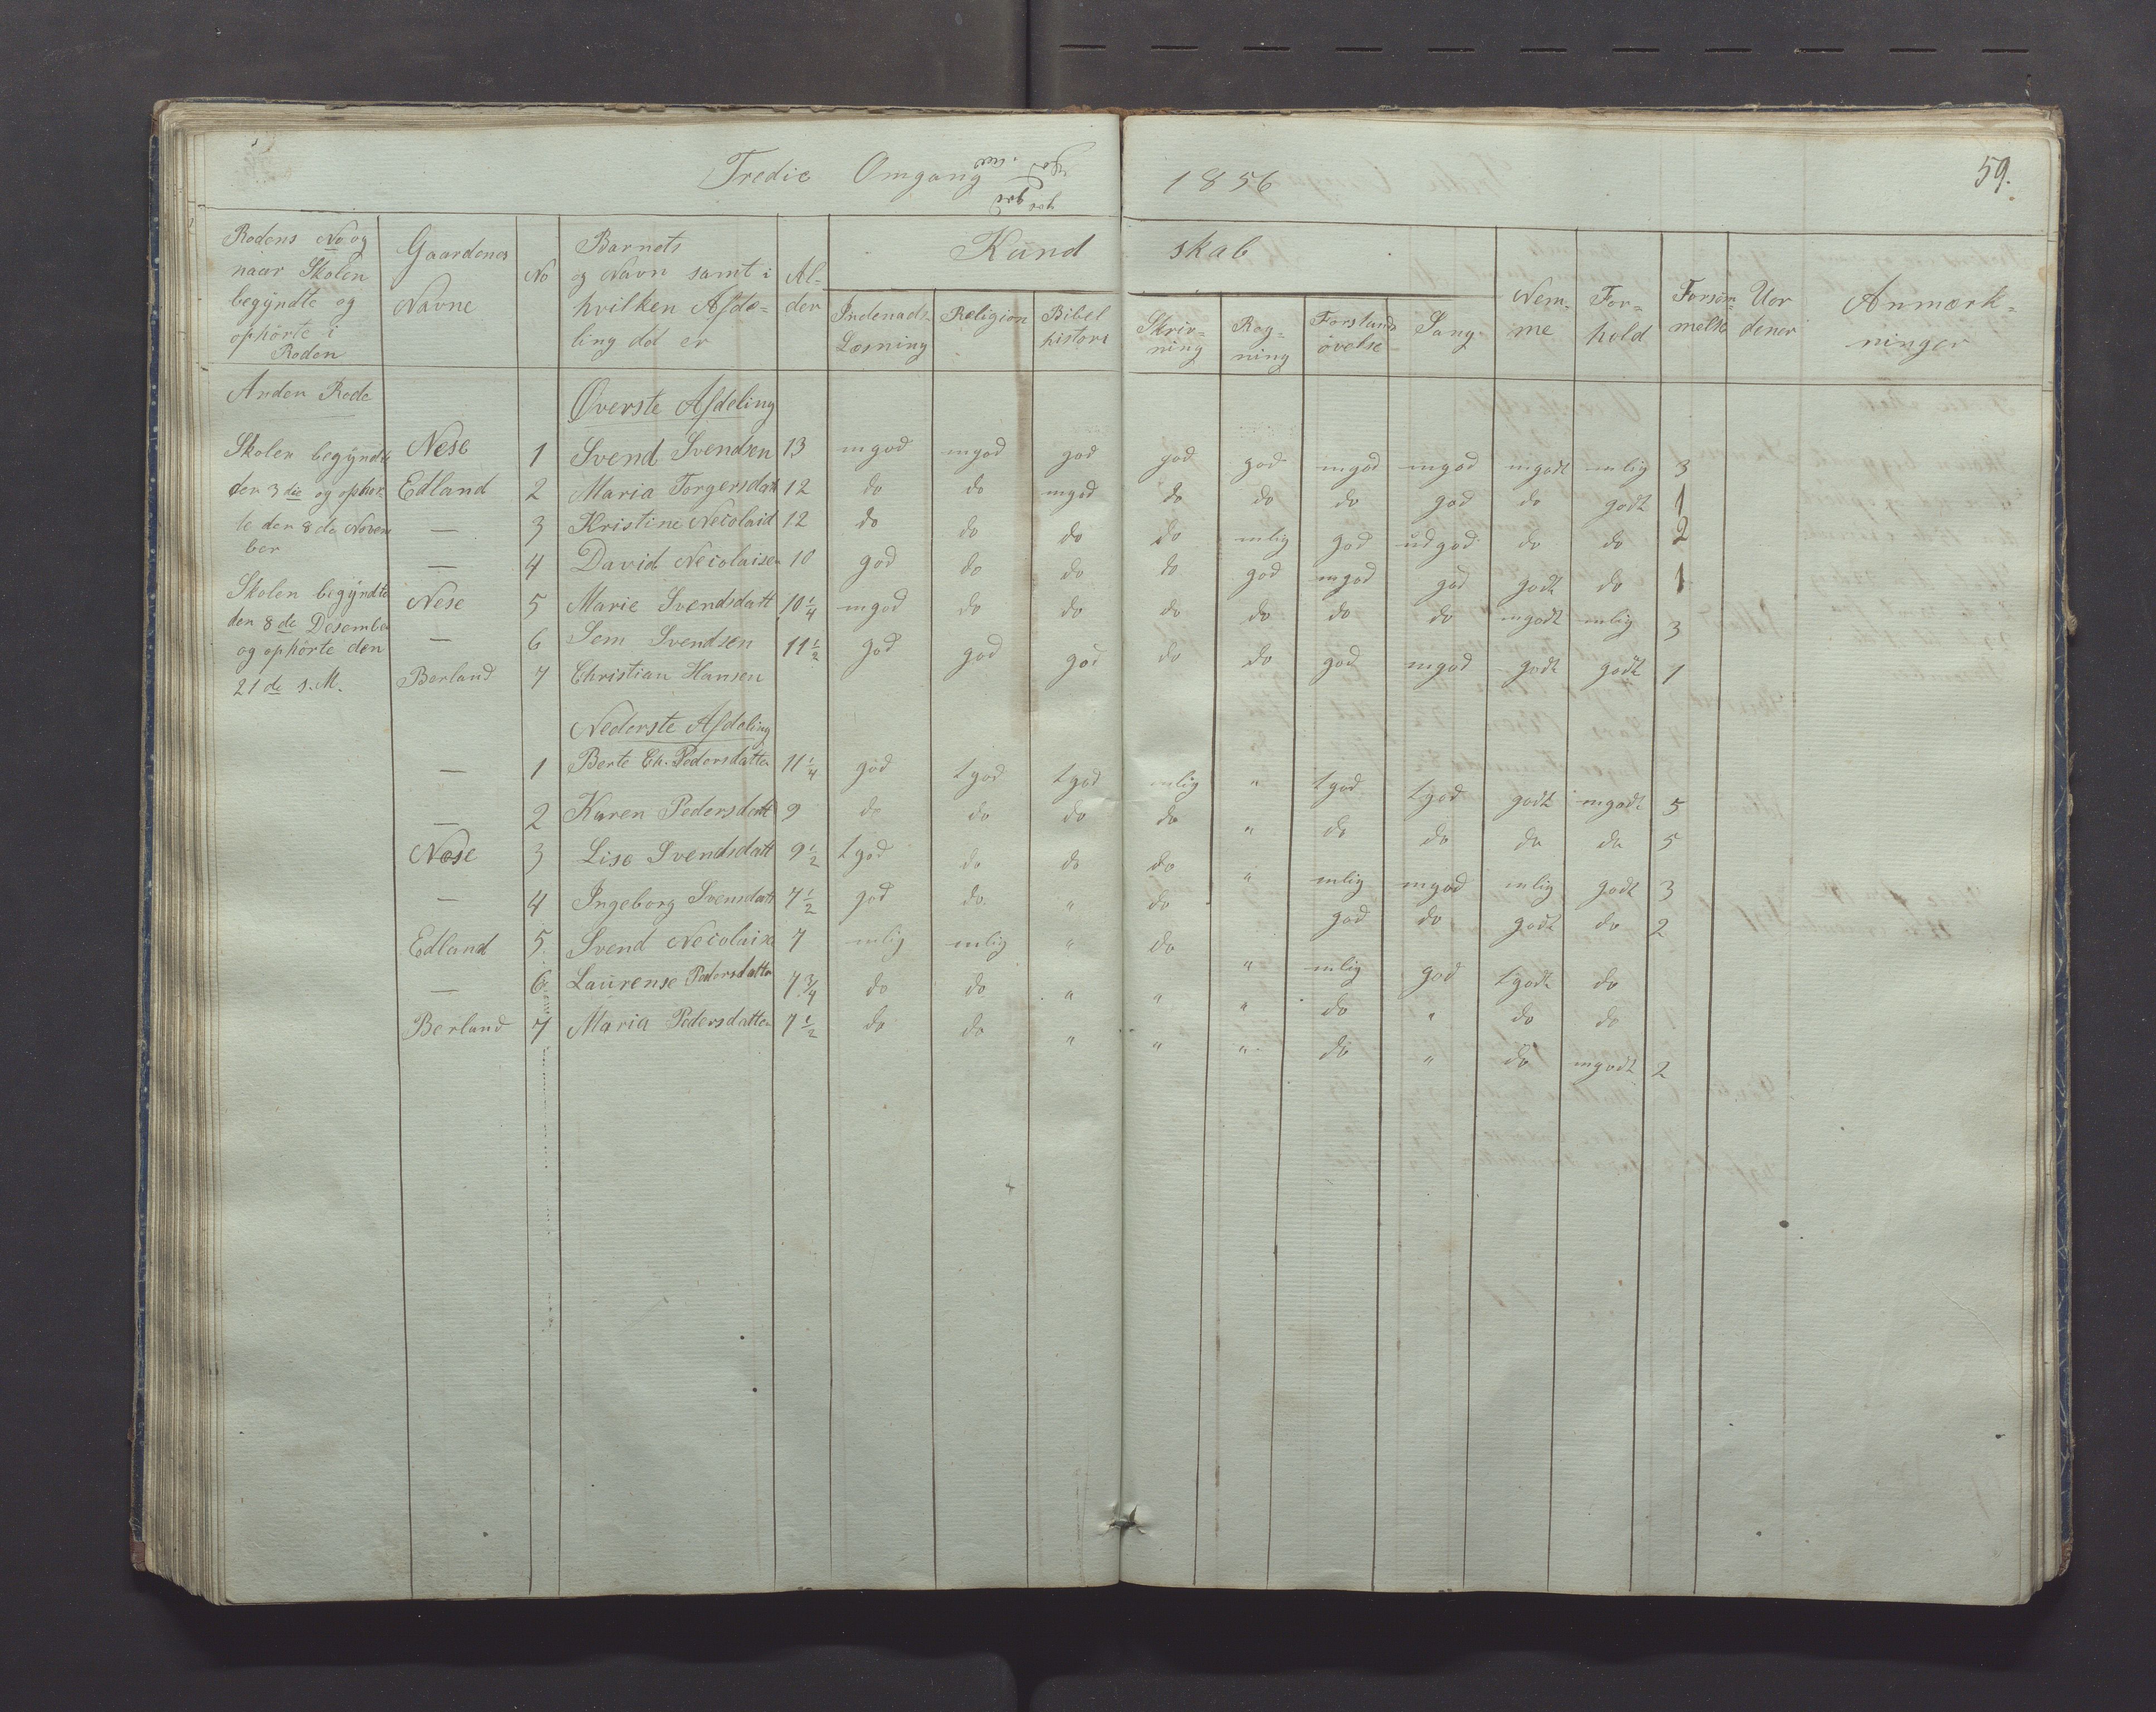 Tredie Omgang 1856 59.
Rodens No og naar Skolen begyndte og ophørte i Roden | Gaardenes Navne | No | Barnets og Navn samt i hvilken Afde-ling det er | Al-der | Kund skab | Indenads-Læsning | Religion | Bibel historie | Skriv-ning | Reg-ning | Forstands øvelse | Sang | Nem-me | For-hold | Forsøm-melse | Uor dener | Anmærk-ninger
Anden Rode | Øverste Afdeling
Skolen begyndte den 3die og ophør-te den 8de Novem ber
Skolen begyndte den 8de Desember og ophørte den 21de s. M.
Nese 1 Svend Svendsen 13 mgod mgod god god god mgod mgod mgodt mlig 3
Edland 2 Maria Torgersdatt 12 do do mgod do do do god do godt 1
— 3 Kristine Necolaid 12 do do do do mlig god udgod do do 2
— 4 David Necolaisen 10 god do do do god mgod god godt do 1
Nese 5 Marie Svendsdatt 10 1/4 mgod do do do do do do mgodt mlig 3
— 6 Sem Svendsen 11 1/2 god god god do do god mgod godt godt 1
Berland 7 Christian Hansen
Nederste Afdeling
— 1 Berte Ch. Pedersdatter 11 1/4 god tgod tgod mlig " tgod tgod godt mgodt 5
— 2 Karen Pedersdatt 9 do do do do " do do do do 5
Nese 3 Lise Svendsdatt 9 1/2 tgod do do do " mlig mgod mlig godt 3
— 4 Ingeborg Svensdatt 7 1/2 god do " do god do godt do 2
Edland 5 Svend Necolaise 7 mlig mlig " do " mlig god tgodt do
— 6 Laurense Pedersdatter 7 3/4 do do " " " do " do do
Berland 7 Maria Pedersdatter 7 1/2 do do " " " do " do mgodt 2